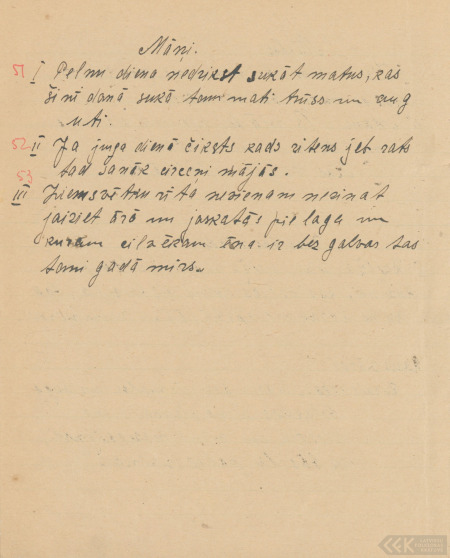 Māņi.
51 I Pelnu diena nedrīkst sukāt matus, kas
šinī danā sukō tam mati trūss un aug
uti.
52 II Ja juga dienā čīksts kads ritens jet rats
tad sanāk circeni mājās.
53 III Ziemsvētku rīta nevienam nezināt
jaiziet ārā un jaskatās pie laga un
kuram cilvēkam ēna ir bez galvas tas
tami gadā mirs.